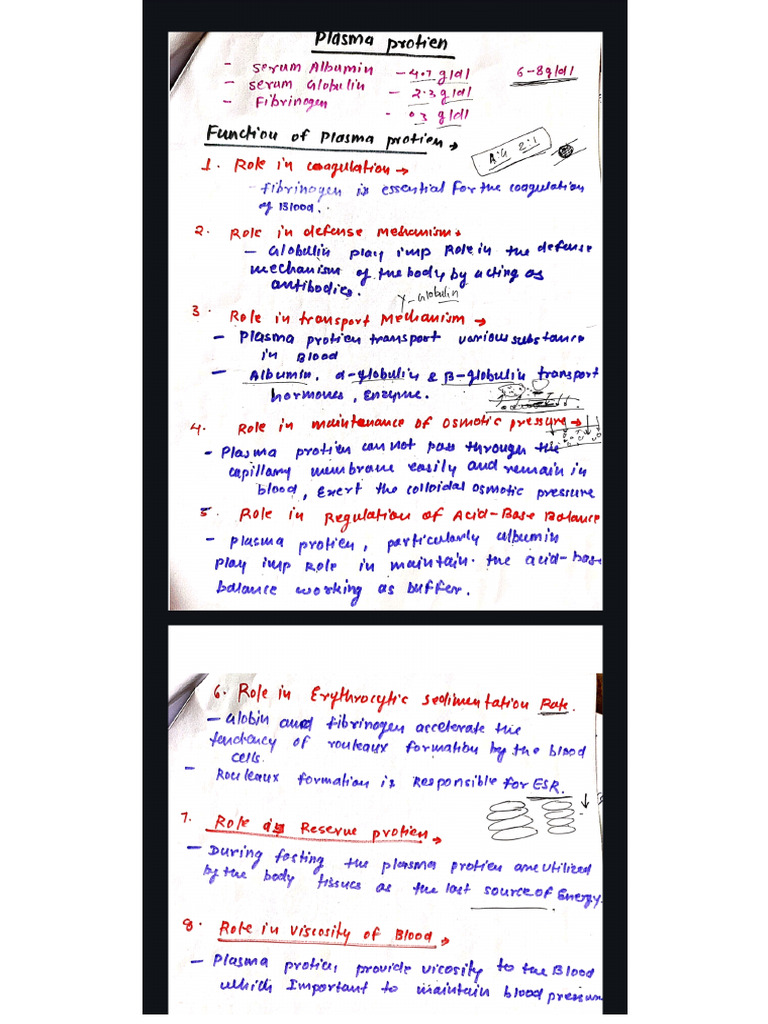 Plasma protien
- Serum Albumin - 4.7 g/dl 6-8g/dl
- serum Globulin - 2.3 g/dl
- Fibrinogen - 0.3 g/dl
Function of Plasma protien →
A:G 2:1
1. Role in coagulation →
- fibrinogen is essential for the coagulation
of Blood.
2. Role in defense Mehanism →
- Globulin play imp Role in the defense
mechanism of the body by acting as
antibodies.
γ-Globulin
3. Role in transport Mechanism →
- Plasma protien transport various substance
in Blood
- Albumin, α-globulin & β-globulin transport
hormones, Enzyme.
4. Role in maintenance of osmotic pressure →
- Plasma protien can not pass through the
capillary membrane easily and remain in
blood, Exert the colloidal osmotic pressure
5. Role in Regulation of Acid-Base Balance
- plasma protien, particularly albumin
play imp Role in maintain. the acid-base
balance working as buffer.
6. Role in Erythrocytic sedimentation Rate.
- Globin and fibrinogen accelerate the
tendency of rouleaux formation by the blood
cells.
- Rouleaux formation is Responsible for ESR.
7. Role as Reserve protien →
- During fasting the plasma protien are utilized
by the body tissues as the last source of Energy.
8. Role in Viscosity of Blood →
- Plasma protien provide vicosity to the Blood
which Important to maintain blood pressure